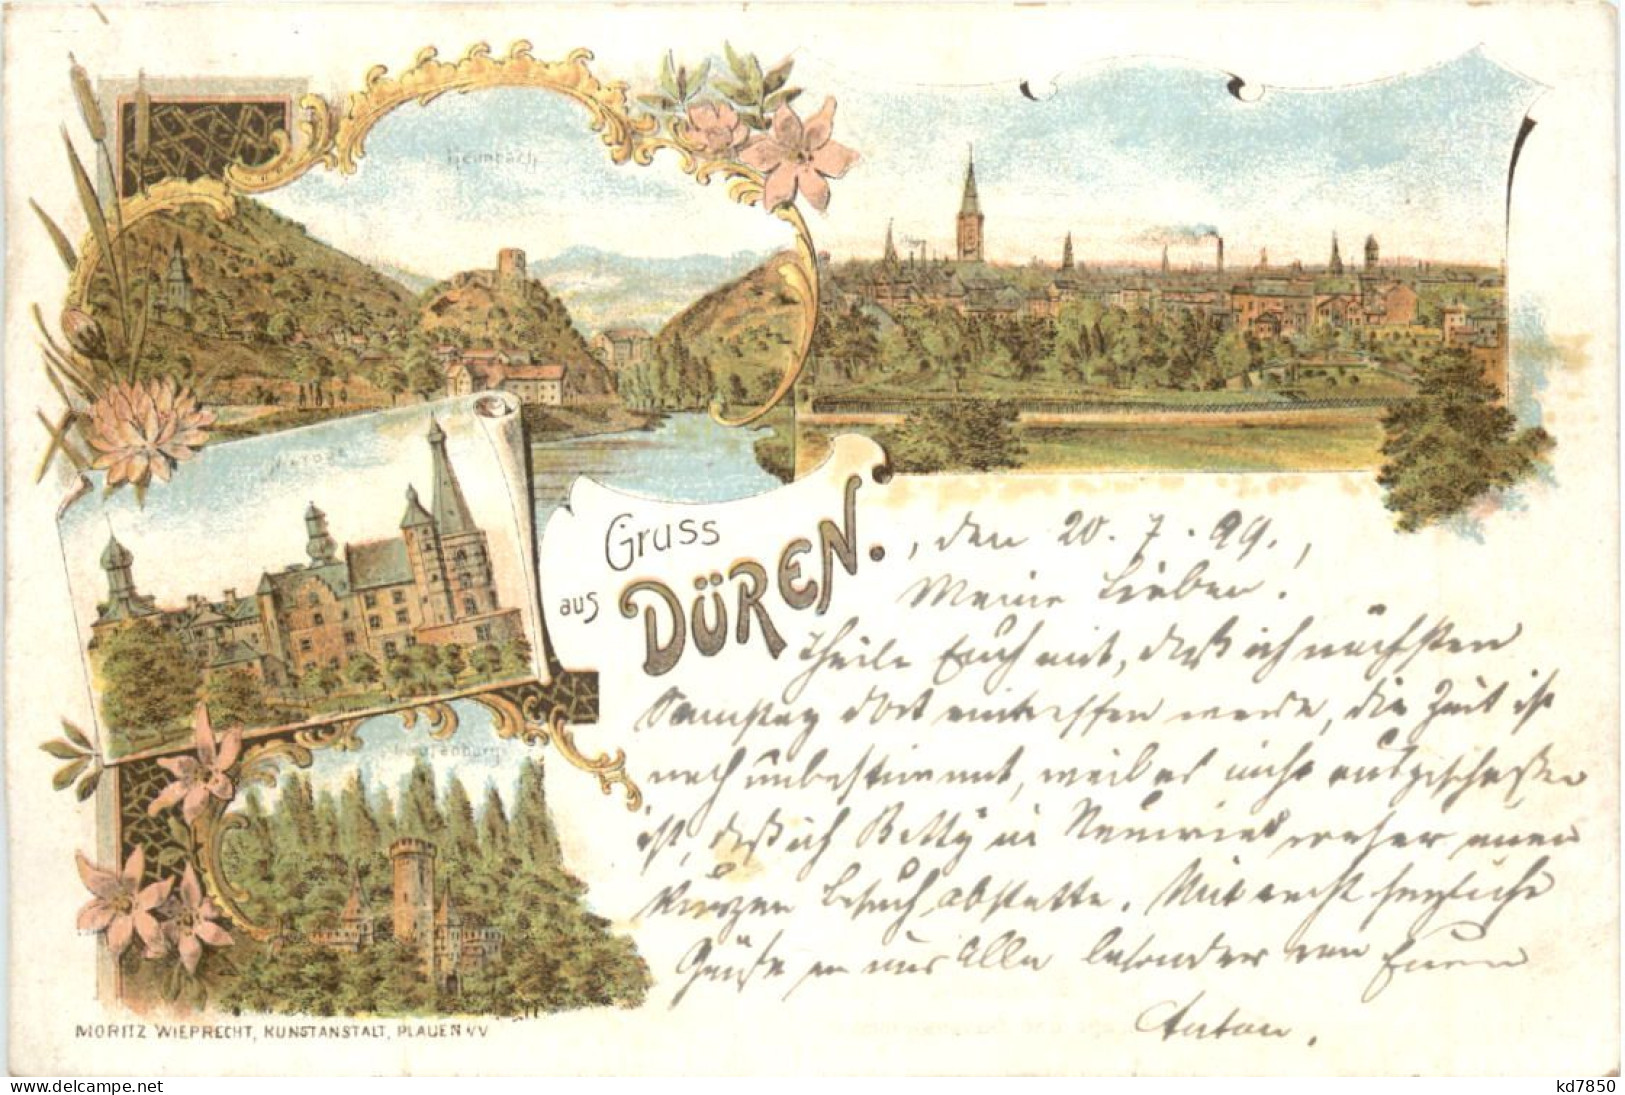 Heimbach
Merode
Laufenburg
Gruss
aus DÜREN.
, den 20. 7. 99.,
Meine Lieben!
Theile Euch mit, daß ich nächsten
Samstag dort eintreffen werde, die Zeit ist
noch unbestimmt, weil es nicht ausgeschloßen
ist, daß ich Betty in Neuwied vorher einen
kurzen Besuch abstatte. Mit recht herzliche
Grüße an Alle besonders von Euren
Anton.
MORITZ WIEPRECHT, KUNSTANSTALT, PLAUEN i/V
delcampe.net
kd7850